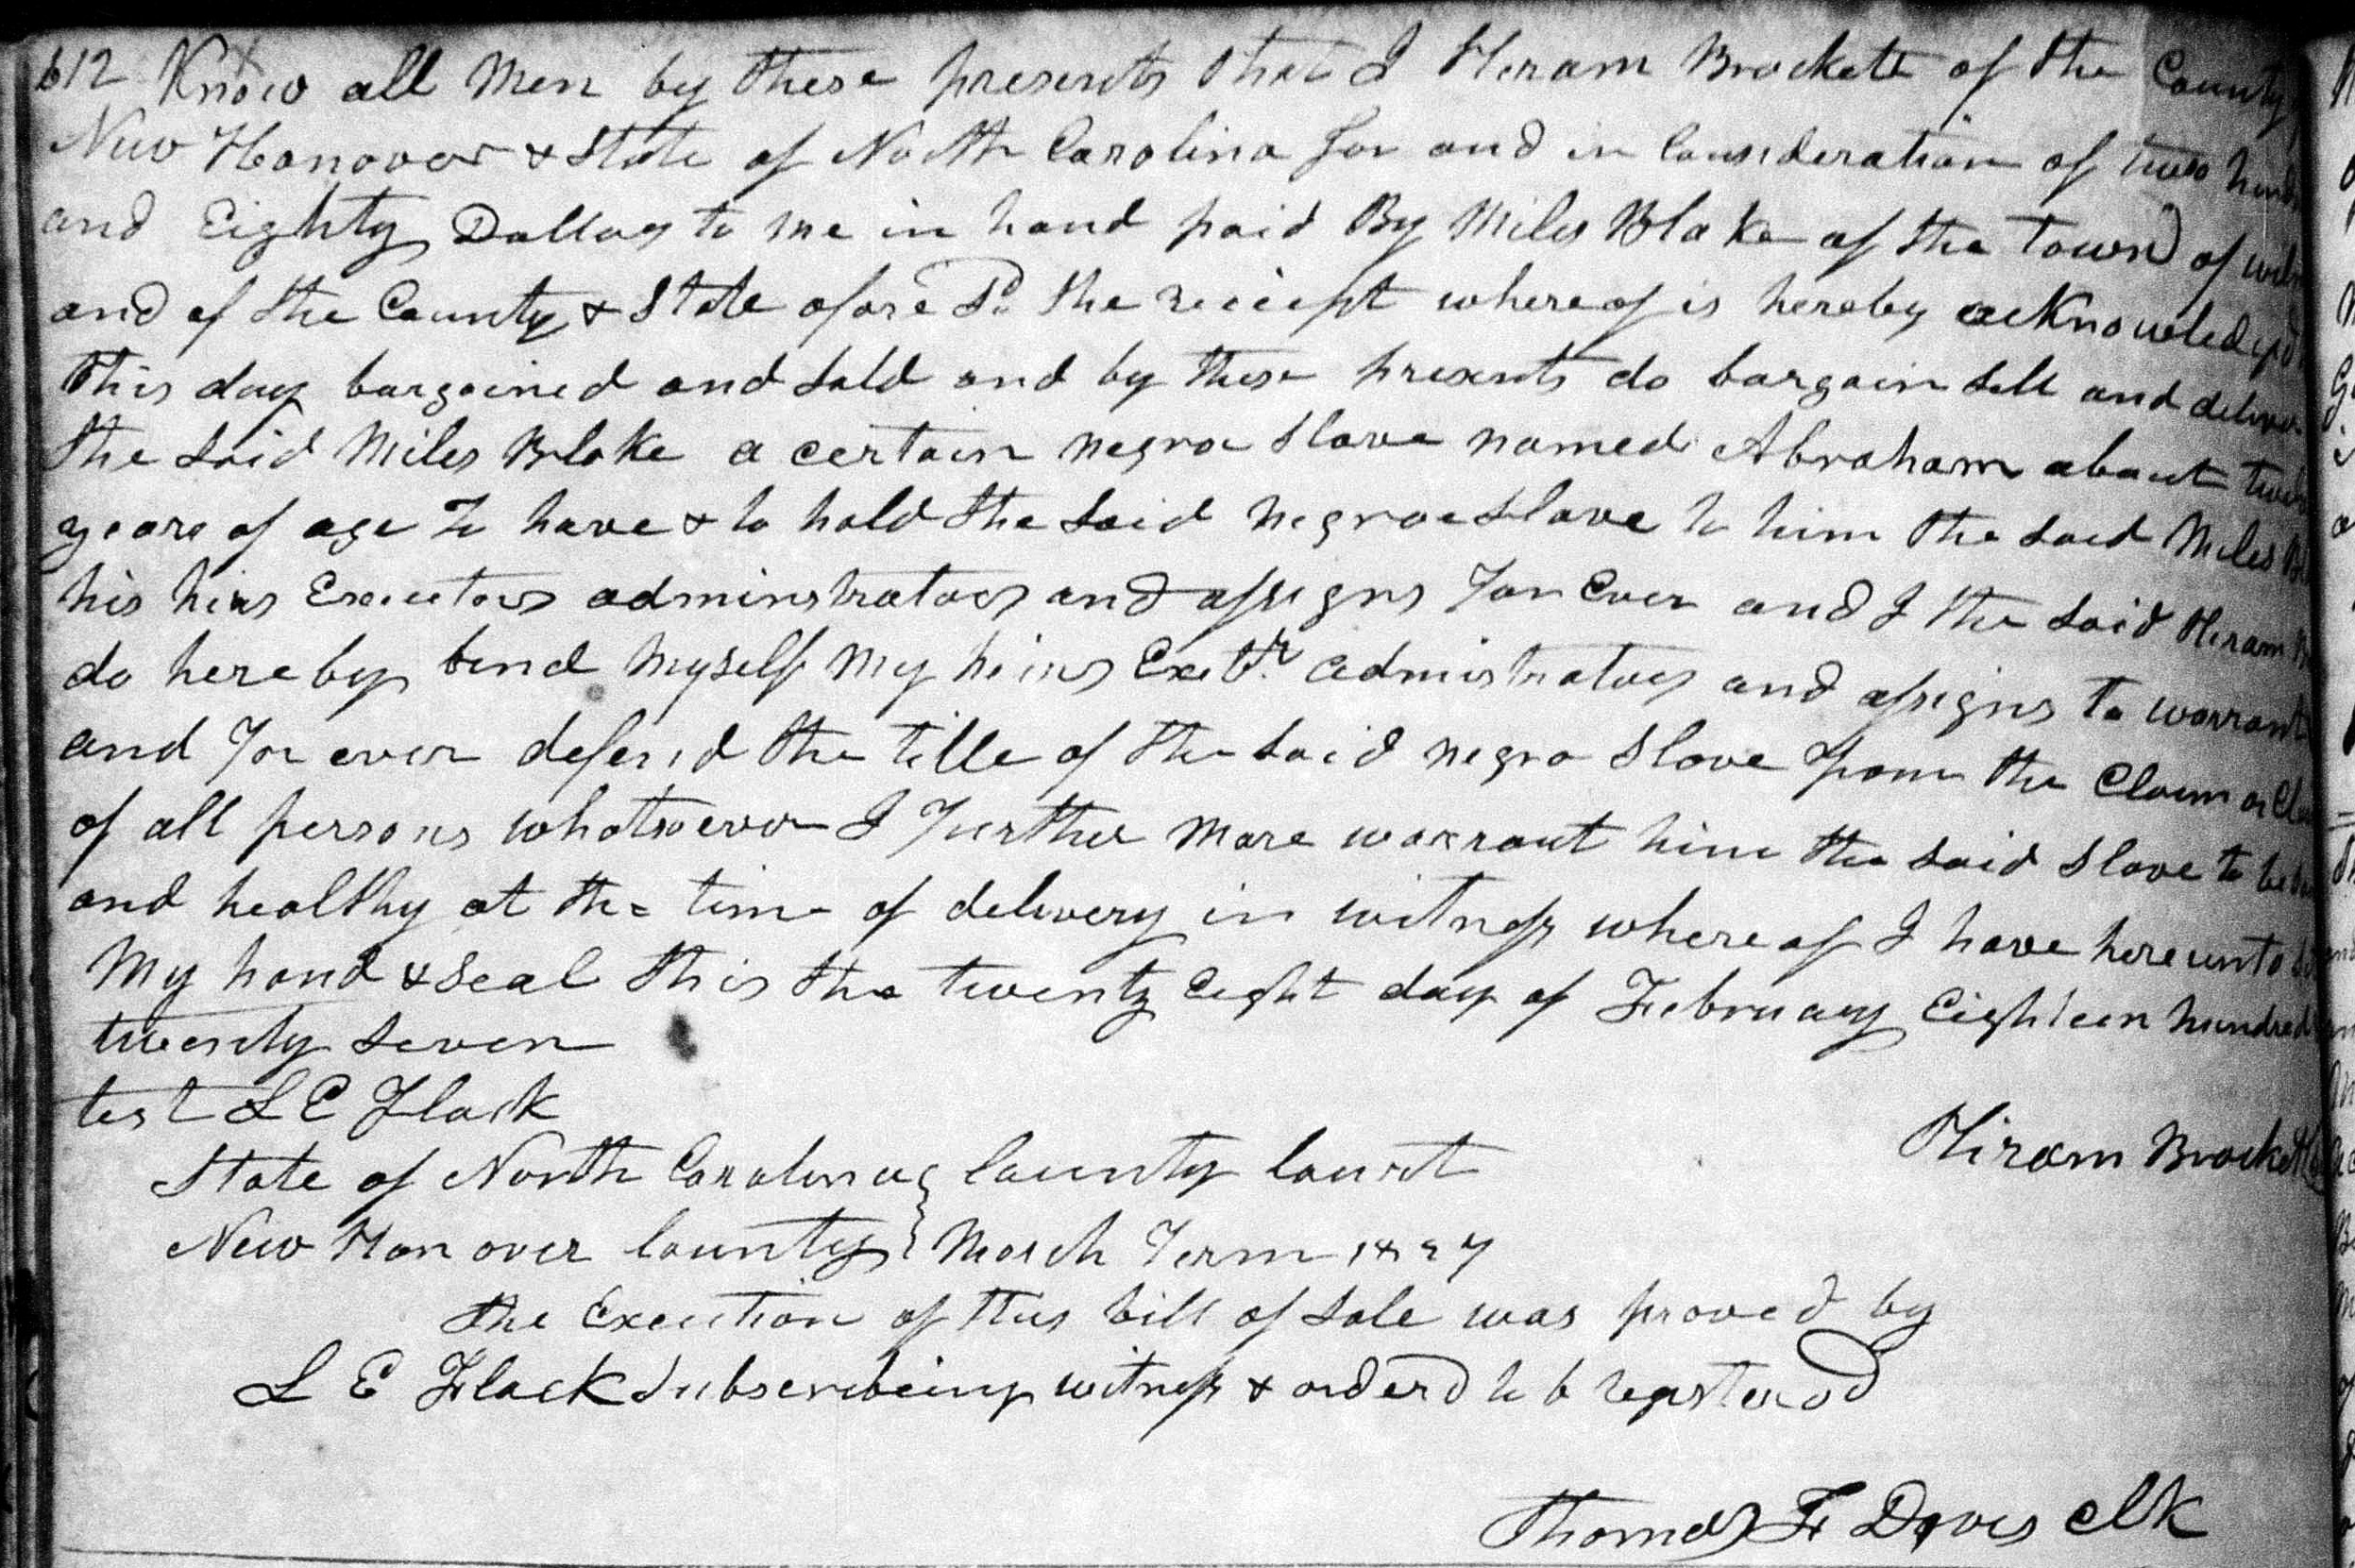 612 Know all Men by these presents that I Hiram Brockett of the County
New Hanover & State of North Carolina for and in Consideration of two
and Eighty Dollars to me in hand paid By Miles Blake of the town of
and of the County & State afore Sd. the reciept whereof is hereby acknowledged
this day bargained and sold and by these presents do bargain sell and deliver
the said Miles Blake a certain negro slave named Abraham about
years of age To have & to hold the said negroe slave to him the said Miles
his heirs Executors adminstrators and assigns For Ever and I the said Hiram
do hereby bind Myself My heirs Exetr. admistrators and assigns to warrant
and For ever defend the title of the said negro slave from the Claim or
of all persons whatsoever I Further More warrant him the said slave to be
and healthy at the time of delivery in witness whereof I have hereunto
My hand & seal this the twenty Eight day of February Eighteen hundred
twenty seven
test L E Flack
Hiram Brockett
State of North Carolina } County Court
New Hanover County } March Term 1827
the Execution of this bill of sale was proved by
L E Flack subscribeing witness & orderd to b registered
Thomas F Davis clk